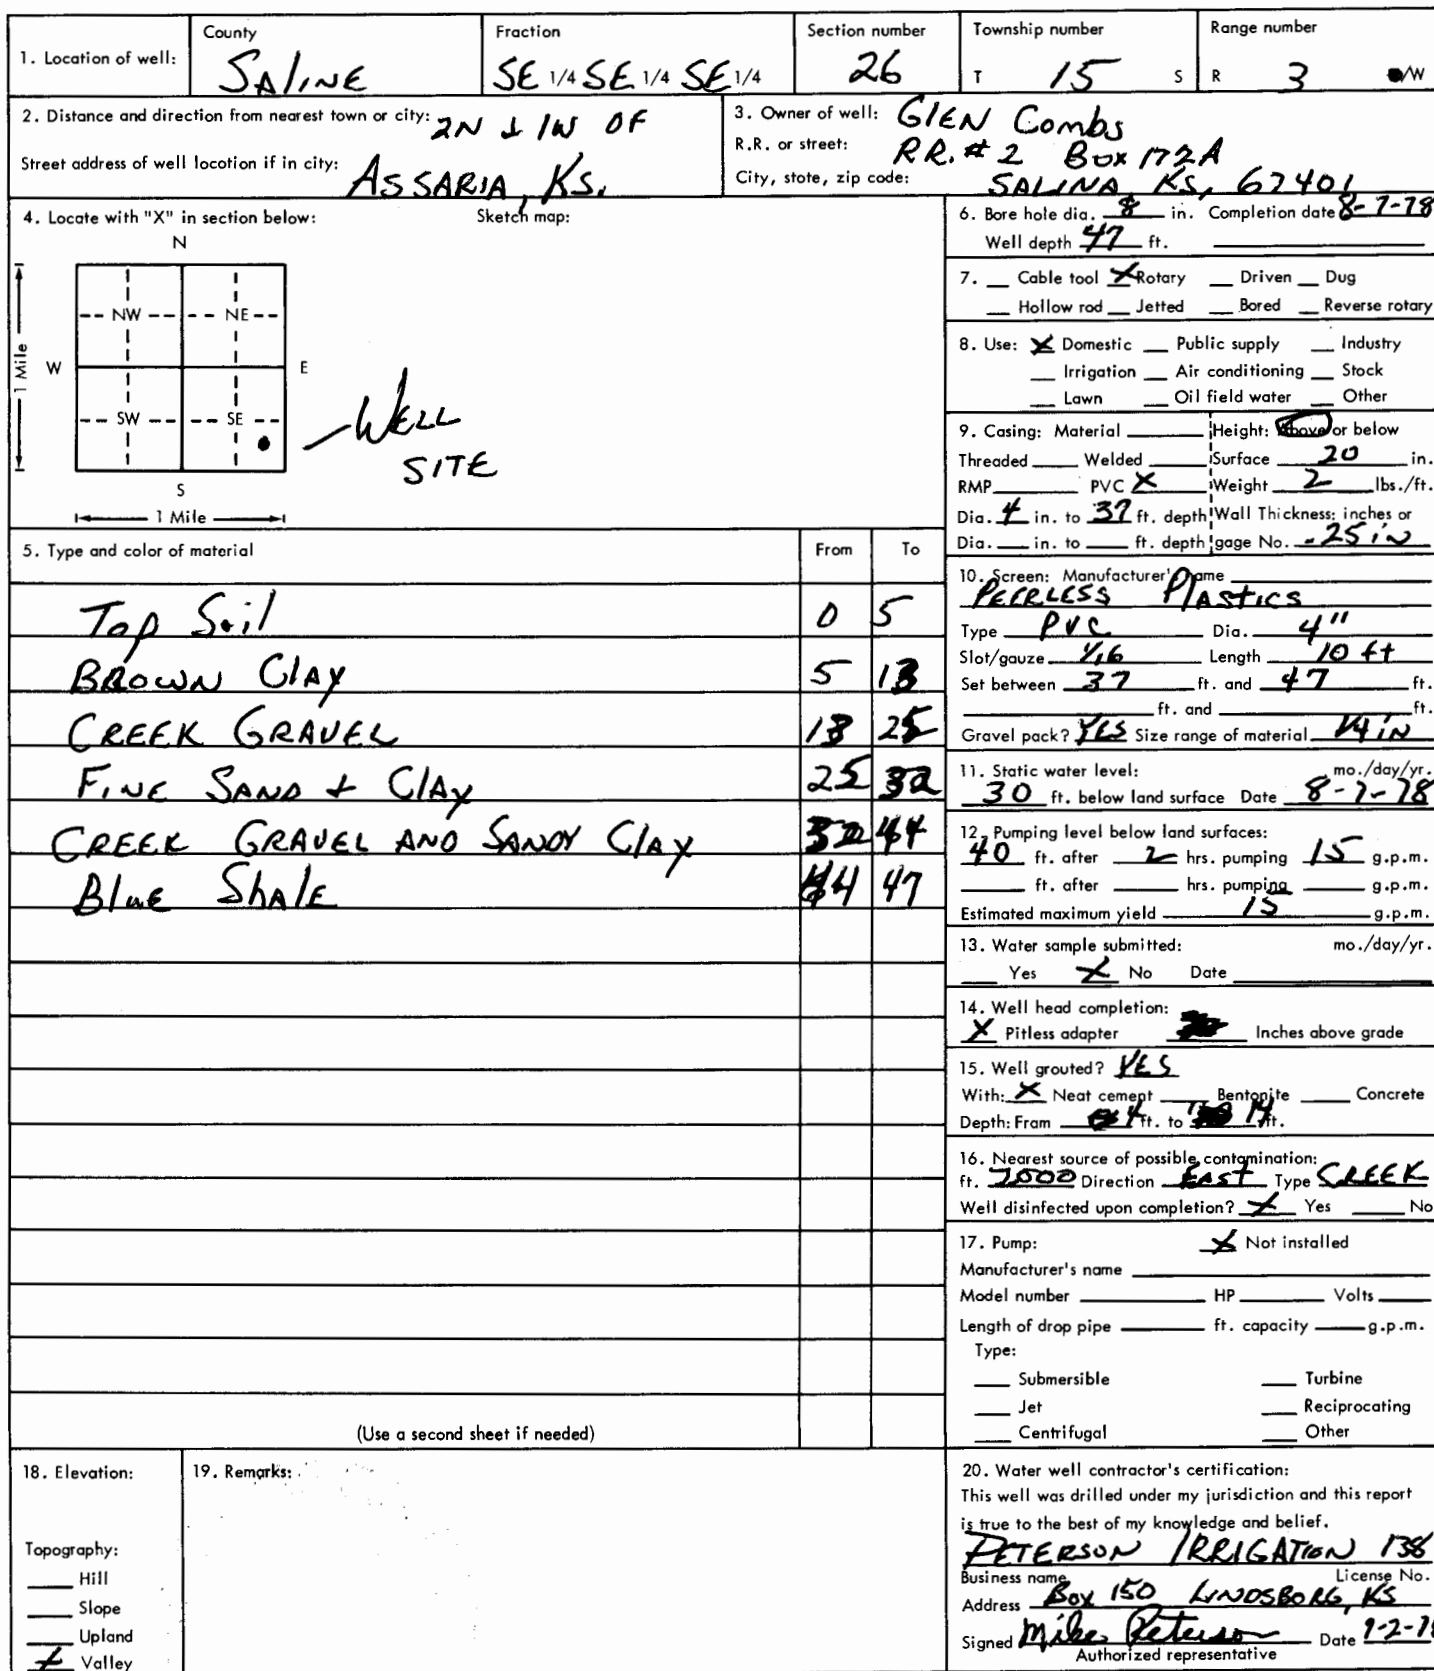 1. Location of well: County Fraction Section number Township number Range number
SALINE SE 1/4 SE 1/4 SE 1/4 26 T 15 S R 3 /W
2. Distance and direction from nearest town or city: 2N & 1W OF
Street address of well location if in city: ASSARIA, KS.
3. Owner of well: GLEN Combs
R.R. or street: RR. # 2 Box 172A
City, state, zip code: SALINA, KS, 67401
4. Locate with "X" in section below: Sketch map:
N
NW NE
W E
1 Mile
SW SE
WELL
SITE
S
1 Mile
5. Type and color of material From To
Top Soil 0 5
BROWN Clay 5 13
CREEK GRAVEL 13 25
FINE SAND & Clay 25 32
CREEK GRAVEL AND SANDY Clay 32 44
Blue Shale 44 47
(Use a second sheet if needed)
6. Bore hole dia. 8 in. Completion date 8-7-78
Well depth 47 ft.
7. Cable tool X Rotary Driven Dug
Hollow rod Jetted Bored Reverse rotary
8. Use: X Domestic Public supply Industry
Irrigation Air conditioning Stock
Lawn Oil field water Other
9. Casing: Material Height: Above or below
Threaded Welded Surface 20 in.
RMP PVC X Weight 2 lbs./ft.
Dia. 4 in. to 37 ft. depth Wall Thickness: inches or
Dia. in. to ft. depth gage No. .25 in
10. Screen: Manufacturer's name
PEERLESS Plastics
Type PVC Dia. 4"
Slot/gauze 1/16 Length 10 ft
Set between 37 ft. and 47 ft.
ft. and ft.
Gravel pack? YES Size range of material 1/4 in
11. Static water level: mo./day/yr.
30 ft. below land surface Date 8-7-78
12. Pumping level below land surfaces:
40 ft. after 2 hrs. pumping 15 g.p.m.
ft. after hrs. pumping g.p.m.
Estimated maximum yield 15 g.p.m.
13. Water sample submitted: mo./day/yr.
Yes X No Date
14. Well head completion:
X Pitless adapter Inches above grade
15. Well grouted? YES
With: X Neat cement Bentonite Concrete
Depth: From 4 ft. to 14 ft.
16. Nearest source of possible contamination:
ft. Direction EAST Type CREEK
Well disinfected upon completion? X Yes No
17. Pump: X Not installed
Manufacturer's name
Model number HP Volts
Length of drop pipe ft. capacity g.p.m.
Type:
Submersible Turbine
Jet Reciprocating
Centrifugal Other
18. Elevation:
Topography:
Hill
Slope
Upland
X Valley
19. Remarks:
20. Water well contractor's certification:
This well was drilled under my jurisdiction and this report
is true to the best of my knowledge and belief.
PETERSON IRRIGATION 138
Business name License No.
Address Box 150 LINDSBORG, KS
Signed Mike Peterson Date
Authorized representative